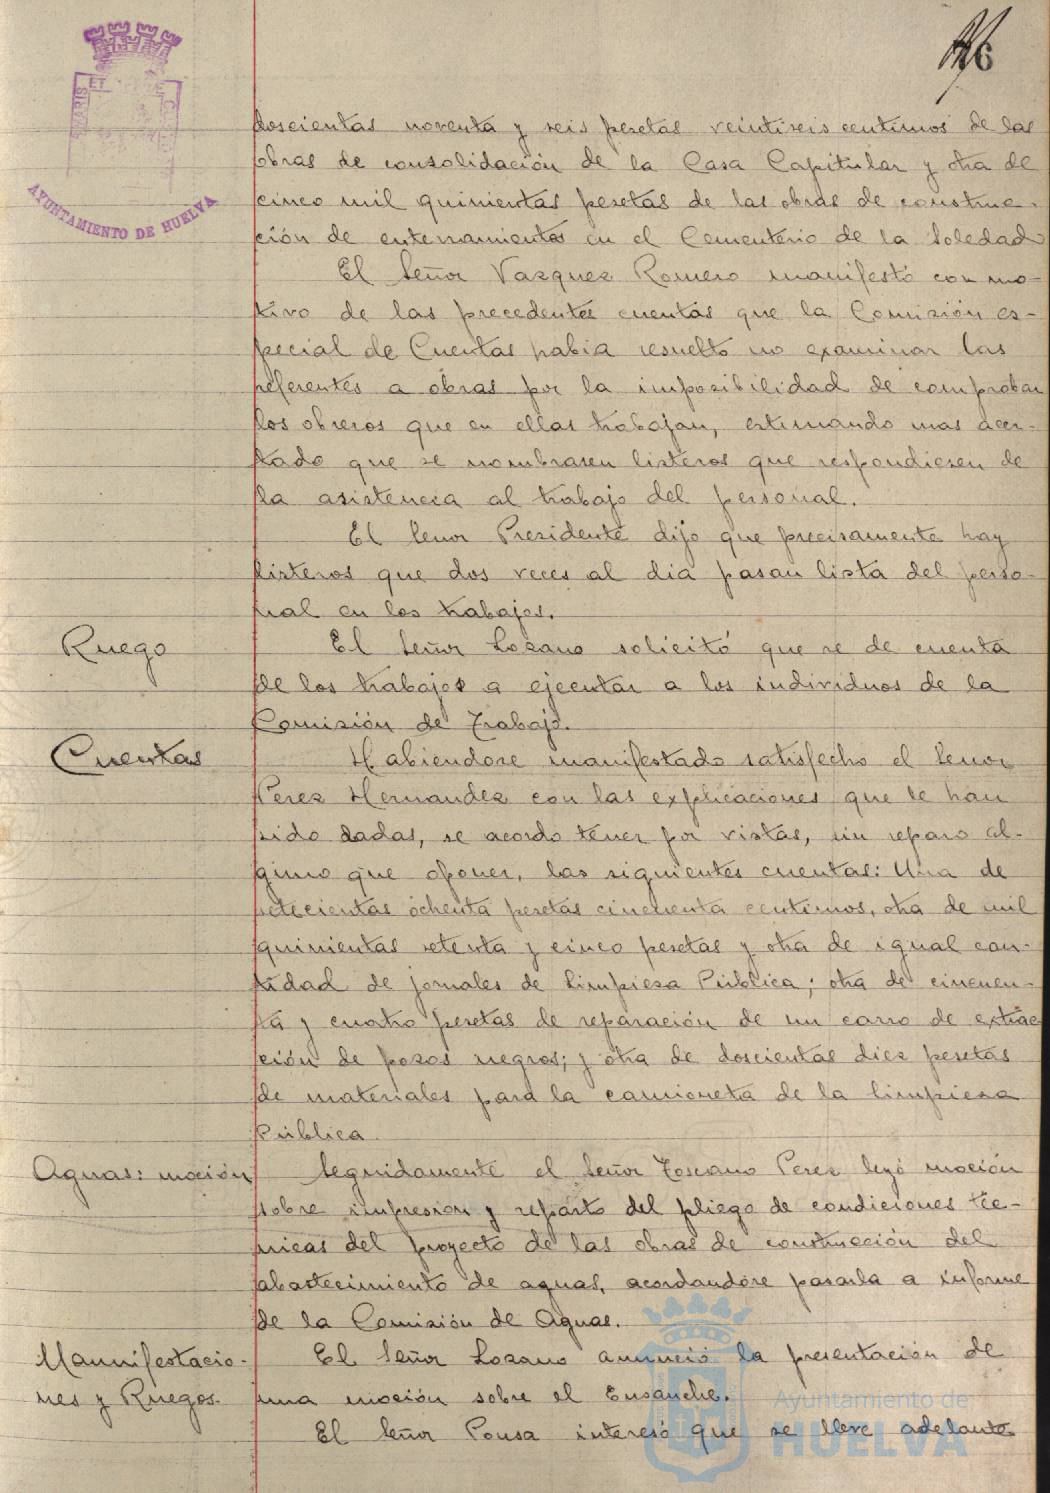 6
AYUNTAMIENTO DE HUELVA
doscientas noventa y seis pesetas veintiseis centimos de las
obras de consolidación de la Casa Capitular y otra de
cinco mil quinientas pesetas de las obras de construc-
ción de enterramientos en el Cementerio de la Soledad
El Señor Vazquez Romero manifestó con mo-
tivo de las precedentes cuentas que la Comisión es-
pecial de Cuentas habia resuelto no examinar las
referentes a obras por la imposibilidad de comprobar
los obreros que en ellas trabajan, estimando mas acer-
tado que se nombrasen listeros que respondiesen de
la asistencia al trabajo del personal.
El Señor Presidente dijo que precisamente hay
listeros que dos veces al dia pasan lista del perso-
nal en los trabajos.
Ruego
El Señor Lozano solicitó que se de cuenta
de los trabajos a ejecutar a los individuos de la
Comisión de Trabajo.
Cuentas
Habiendose manifestado satisfecho el Senor
Perez Hernandez con las explicaciones que le han
sido dadas, se acordo tener por vistas, sin reparo al-
guno que oponer, las siguientes cuentas: Una de
setecientas ochenta pesetas cincuenta centimos, otra de mil
quinientas setenta y cinco pesetas y otra de igual can-
tidad de jornales de Limpieza Pública; otra de cincuen-
ta y cuatro pesetas de reparación de un carro de extrac-
ción de pozos negros; y otra de doscientas diez pesetas
de materiales para la camioneta de la limpieza
Pública.
Aguas: moción
Seguidamente el Señor Toscano Perez leyó moción
sobre impresion y reparto del pliego de condiciones téc-
nicas del proyecto de las obras de construcción del
abastecimiento de aguas, acordandose pasarla a informe
de la Comisión de Aguas.
Mannifestacio-
nes y Ruegos.
El Señor Lozano anunció la presentación de
una moción sobre el Ensanche.
El Señor Pousa interesó que se lleve adelante
Ayuntamiento de
HUELVA